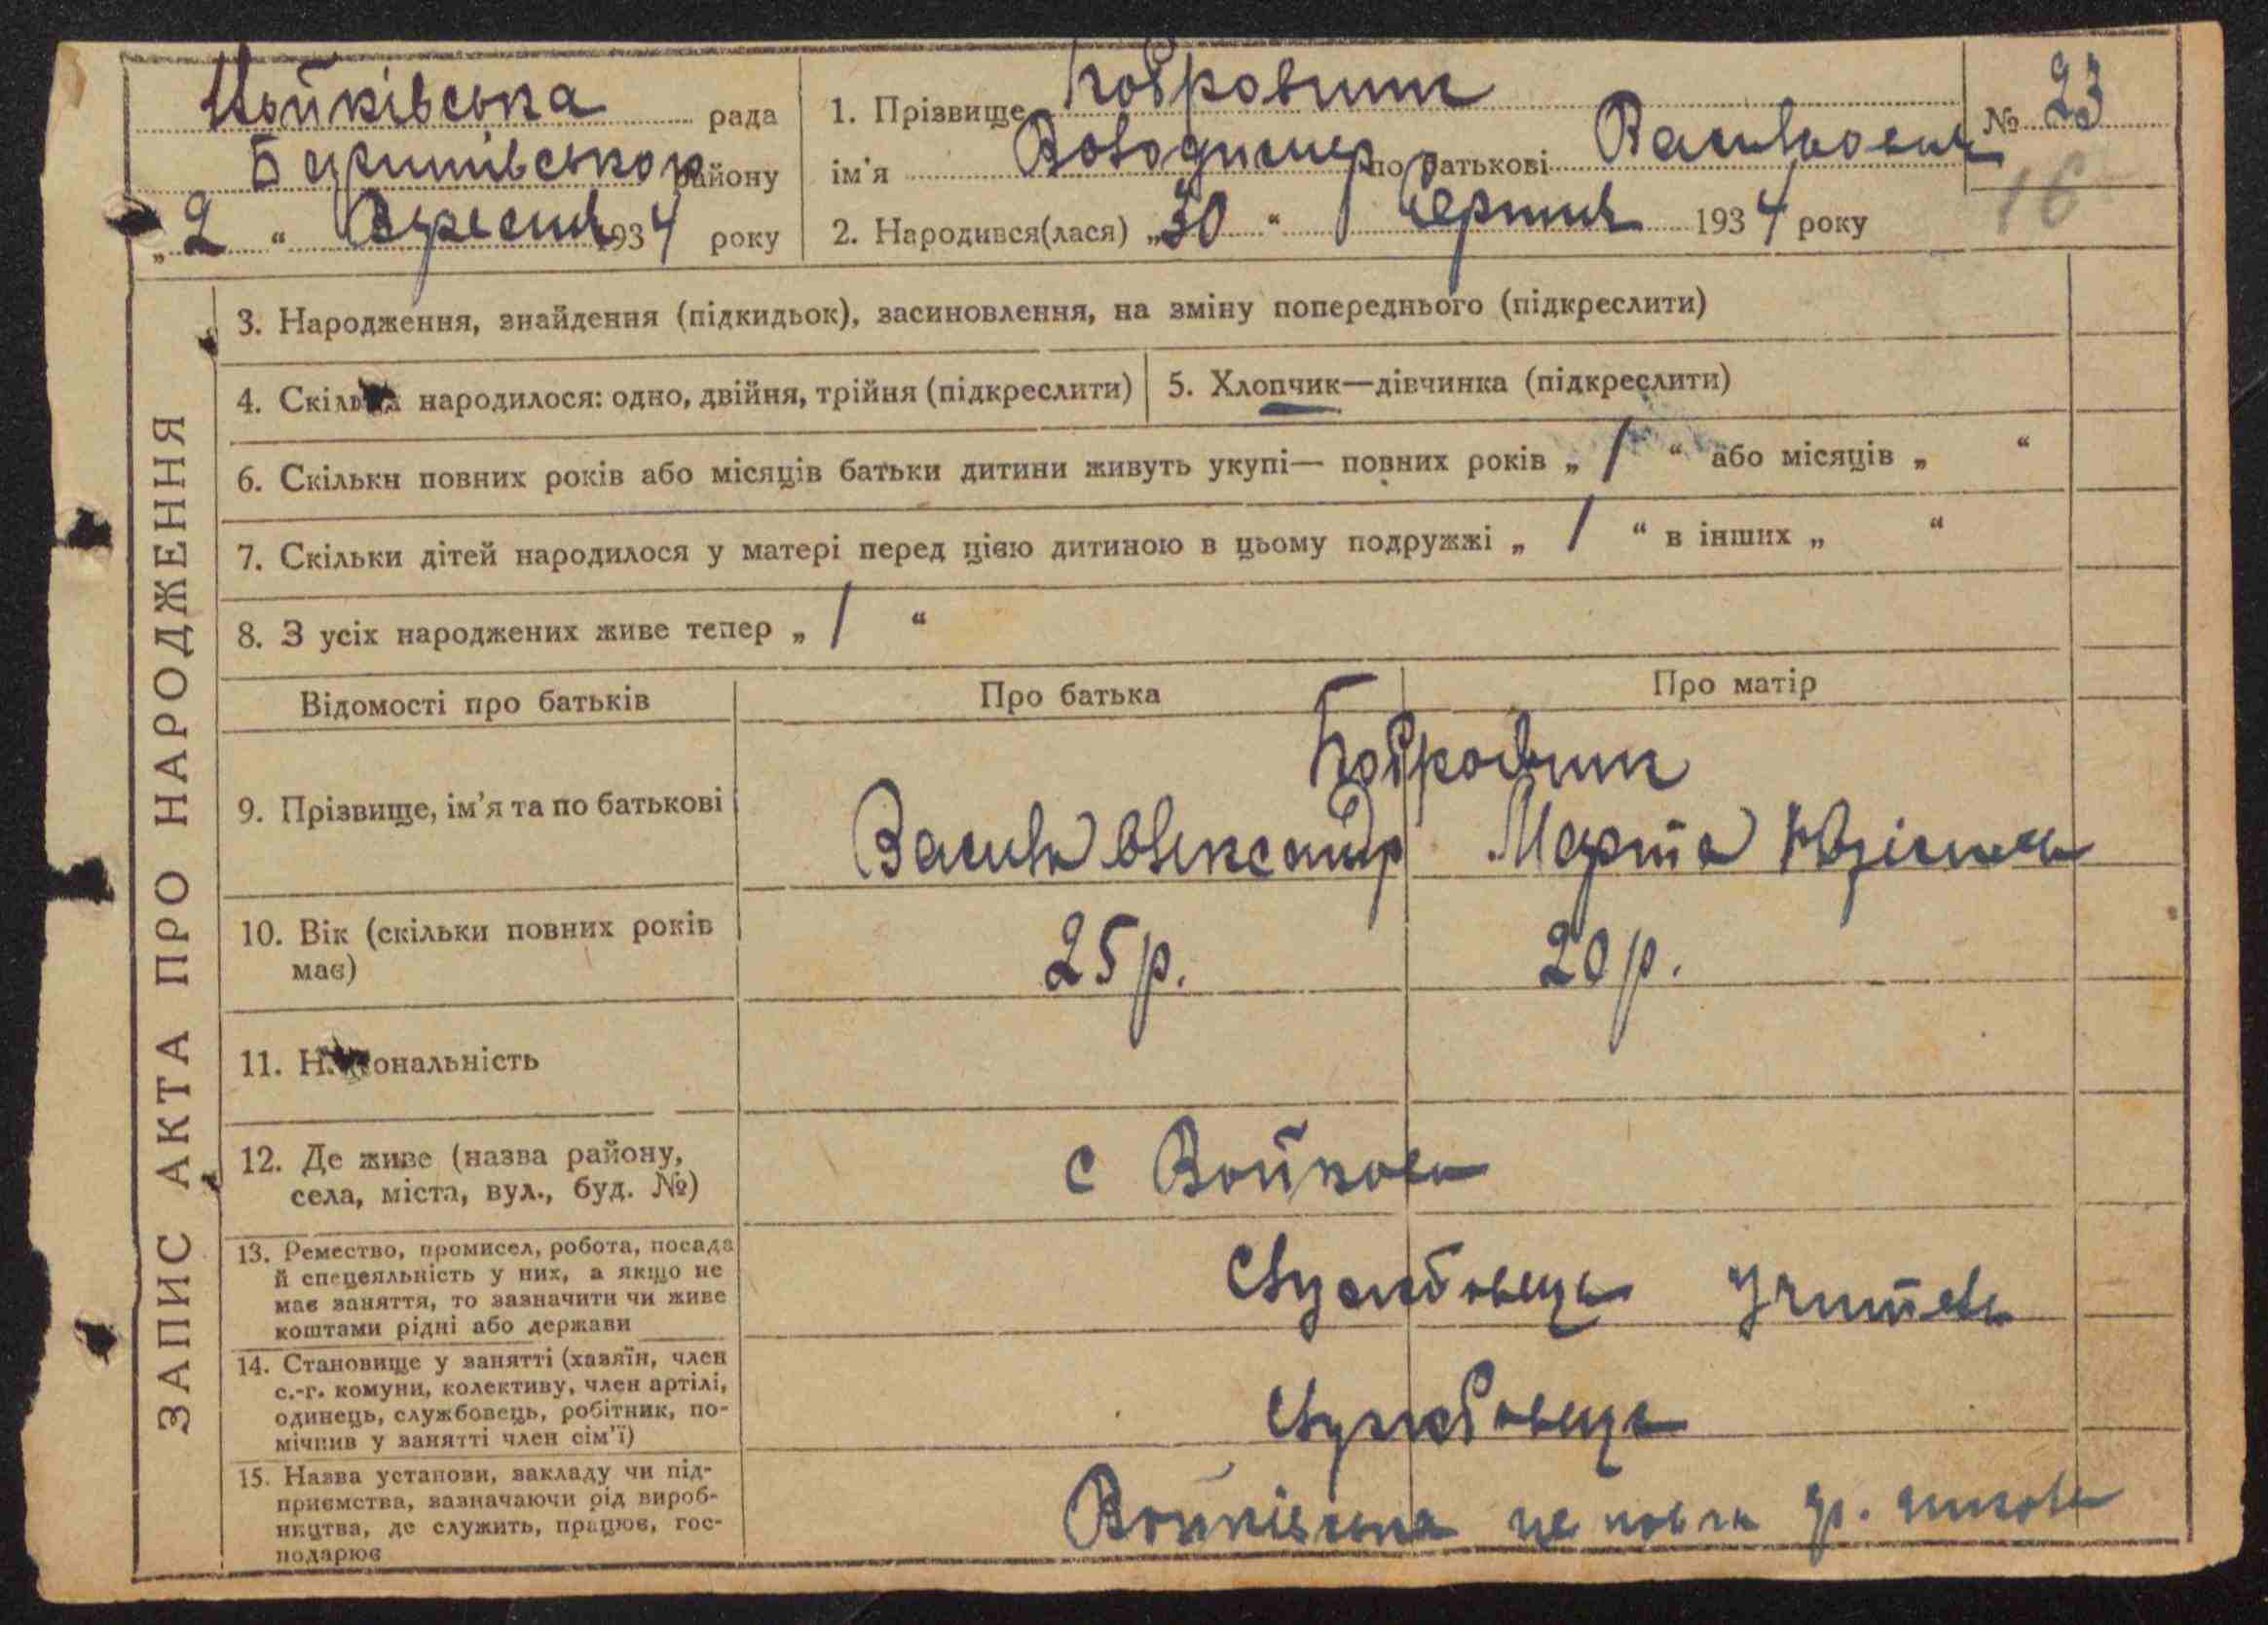 Войківська рада
Баришівського району
„2“ Вересня 1934 року
1. Прізвище Бобровник
ім'я Володимир по батькові Васильович
2. Народився(лася) „30“ Серпня 1934 року
№ 23
16
ЗАПИС АКТА ПРО НАРОДЖЕННЯ
3. Народження, знайдення (підкидьок), засиновлення, на зміну попереднього (підкреслити)
4. Скільки народилося: одно, двійня, трійня (підкреслити)
5. Хлопчик—дівчинка (підкреслити)
6. Скільки повних років або місяців батьки дитини живуть укупі— повних років „ 1 “ або місяців „ “
7. Скільки дітей народилося у матері перед цією дитиною в цьому подружжі „ 1 “ в інших „ “
8. З усіх народжених живе тепер „ 1 “
Відомості про батьків
Про батька
Про матір
9. Прізвище, ім'я та по батькові
Бобровник
Василь Олександр
Марта
10. Вік (скільки повних років
має)
25 р.
20 р.
11. Національність
12. Де живе (назва району,
села, міста, вул., буд. №)
с Войкова
13. Ремество, промисел, робота, посада
й спецеяльність у них, а якщо не
має заняття, то зазначити чи живе
коштами рідні або держави
Службовець Учитель
14. Становище у занятті (хазяїн, член
с.-г. комуни, колективу, член артілі,
одинець, службовець, робітник, по-
мічнив у занятті член сім'ї)
Службовець
15. Назва установи, закладу чи під-
приємства, зазначаючи рід вироб-
ництва, де служить, працює, гос-
подарює
Войківська не повна школа